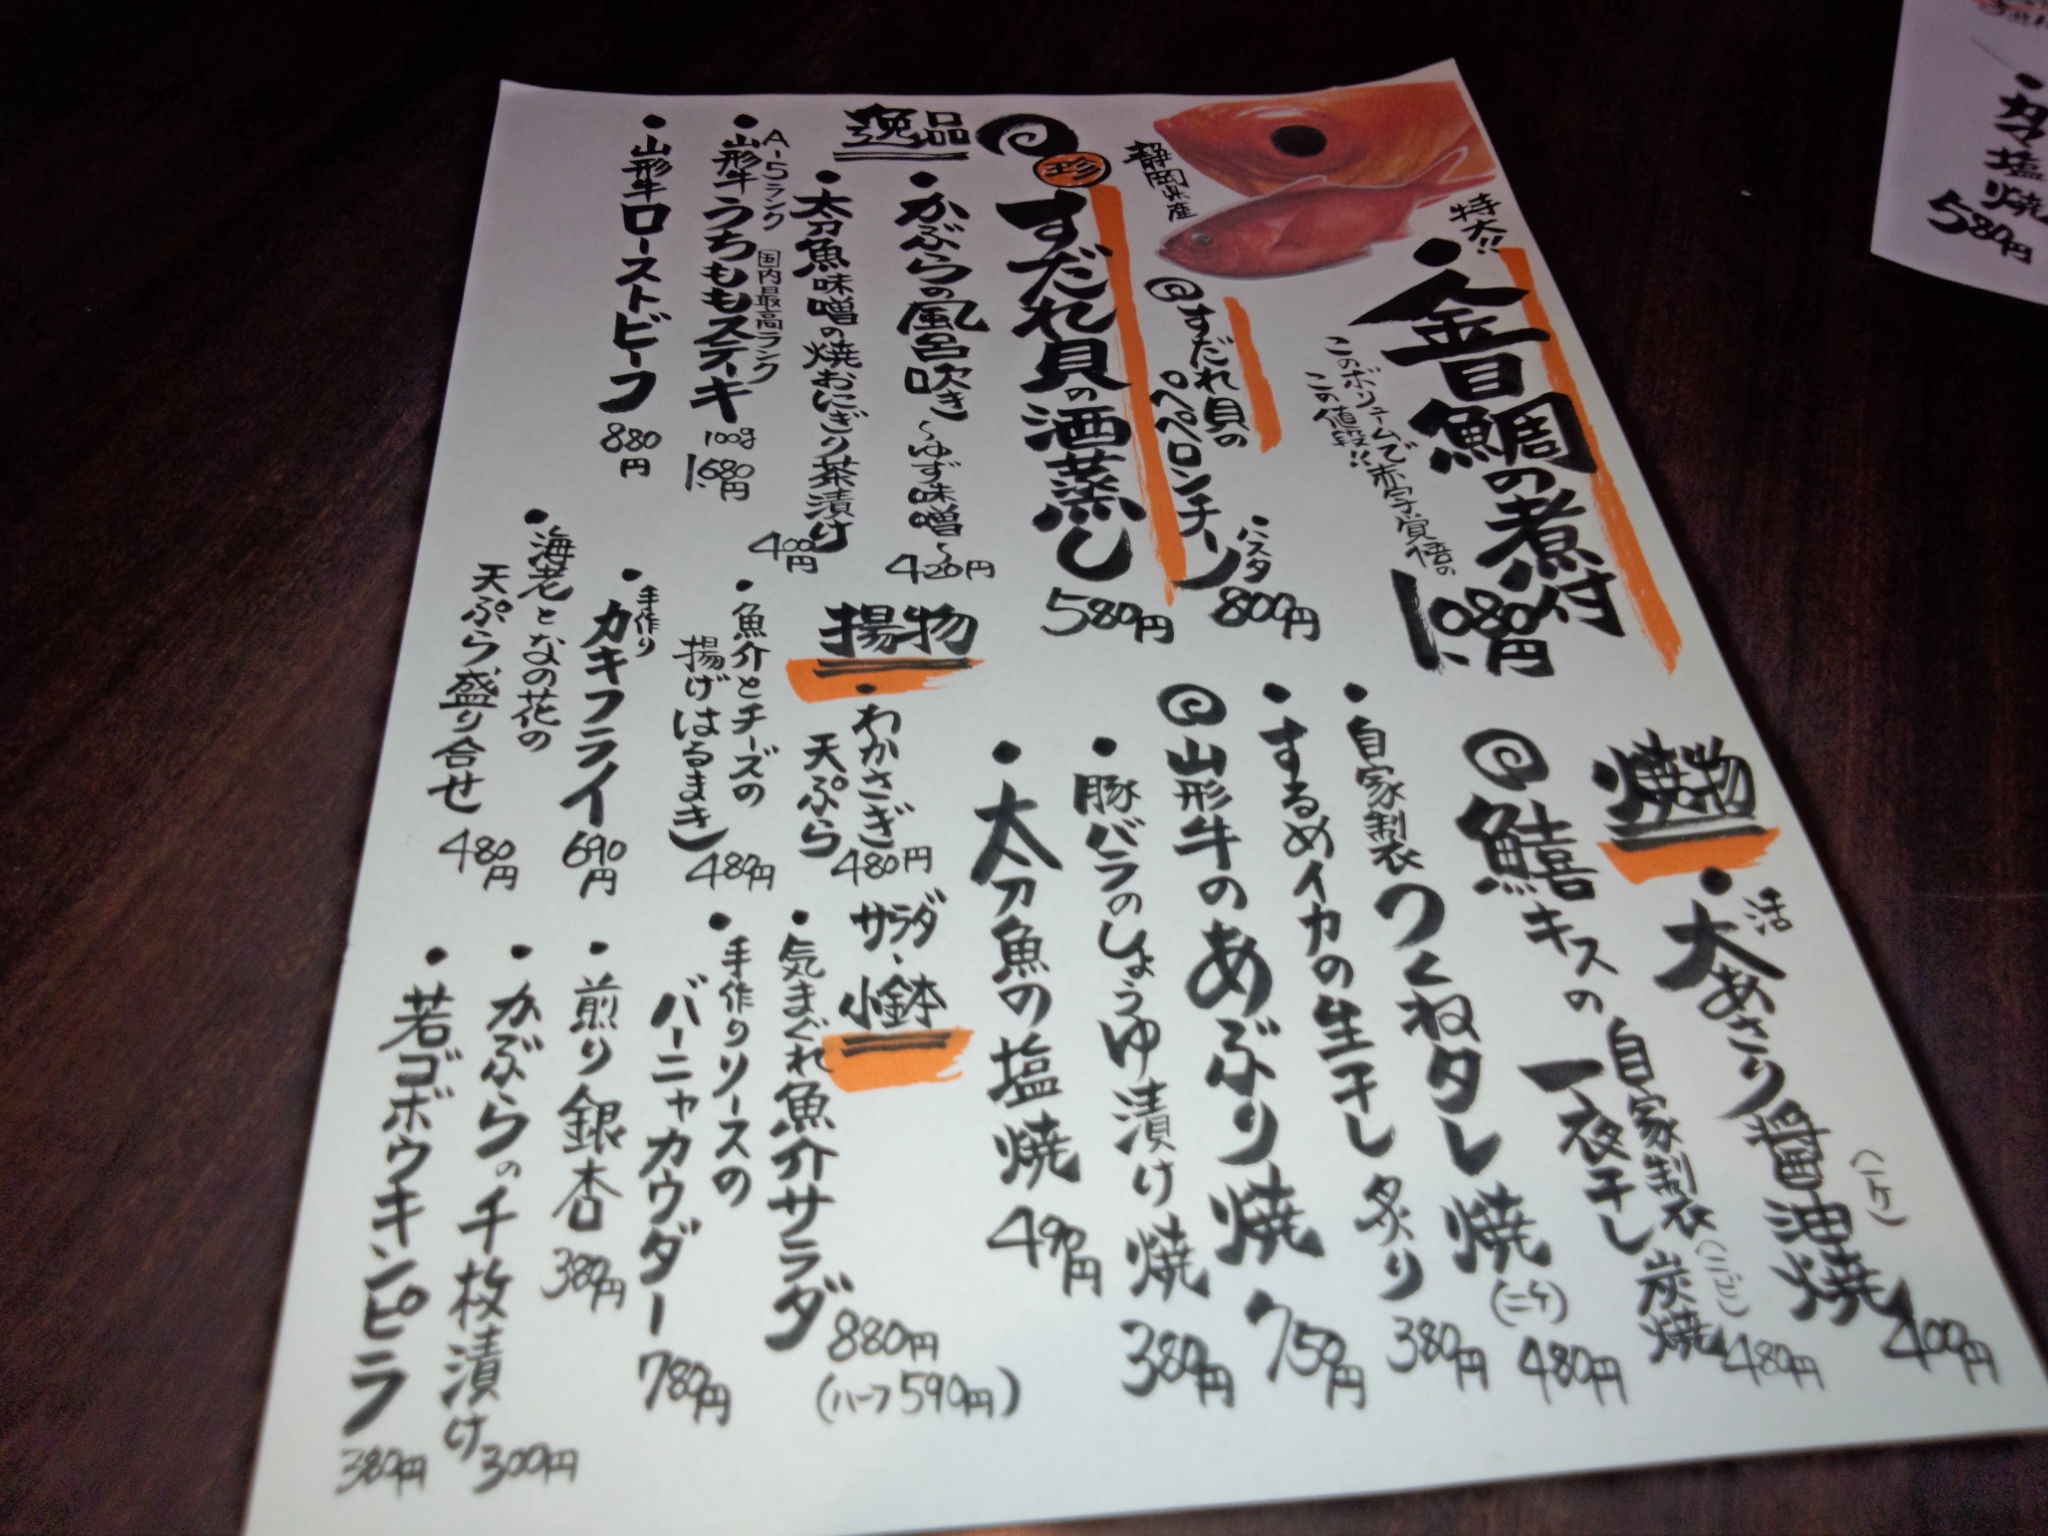 特大!!
・金目鯛の煮付
このボリュームで赤字覚悟の
この値段!!
1,080円
静岡県産
すだれ貝の
ペペロンチーノ
・パスタ
800円
珍
すだれ貝の酒蒸し
580円
逸品
・かぶらの風呂吹き 〜ゆず味噌〜
420円
・太刀魚味噌の焼おにぎり茶漬け
400円
A-5ランク 国内最高ランク
・山形牛うちももステーキ
100g
1,680円
・山形牛ローストビーフ
880円
焼物
・活大あさり醤油焼
(一ケ)
400円
鱚キスの一夜干し
自家製 炭焼
480円
・自家製つくねタレ焼
(二ケ)
480円
・するめイカの生干し炙り
380円
山形牛のあぶり焼
750円
・豚バラのしょうゆ漬け焼
380円
・太刀魚の塩焼
490円
揚物
・わかさぎ
天ぷら
480円
・魚介とチーズの
揚げはるまき
480円
・手作り
カキフライ
690円
・海老となの花の
天ぷら盛り合せ
480円
サラダ・
小鉢
・気まぐれ魚介サラダ
880円
(ハーフ590円)
・手作りソースの
バーニャカウダー
780円
・煎り銀杏
380円
・かぶらの千枚漬け
300円
・若ゴボウキンピラ
380円
・カマ塩焼
580円